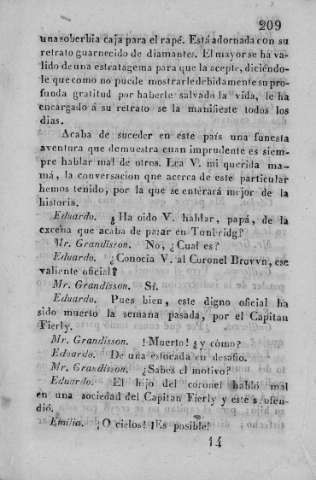 209
una soberbia caja para el rapé. Está adornada con su
retrato guarnecido de diamantes. El mayor se há va-
lido de una estratagema para que la acepte, diciéndo-
le que como no puede mostrarle debidamente su pro-
funda gratitud por haberle salvado la vida, le ha
encargado á su retrato se la manifieste todos los
dias.
Acaba de suceder en este país una funesta
aventura que demuestra cuan imprudente es siem-
pre hablar mal de otros. Lea V. mi querida ma-
má, la conversacion que acerca de este particular
hemos tenido, por la que se enterará mejor de
la historia.
Eduardo. ¿Ha oido V. hablar, papá, de la
exceña que acaba de pasar en Tonbridg?
Mr. Grandisson. No, ¿Cual es?
Eduardo. ¿Conocia V. al Coronel Brovvn, ese
valiente oficial?
Mr. Grandisson. Sí.
Eduardo. Pues bien, este digno oficial ha
sido muerto la semana pasada, por el Capitan
Fierly.
Mr. Grandisson. ¡Muerto! ¿y cómo?
Eduardo. De una estocada en desafio.
Mr. Grandisson. ¿Sabes el motivo?
Eduardo. El hijo del coronel habló mal
en una sociedad del Capitan Fierly y este s. ofen-
dió.
Emilia. ¡O cielos! ¡Es posible!
14